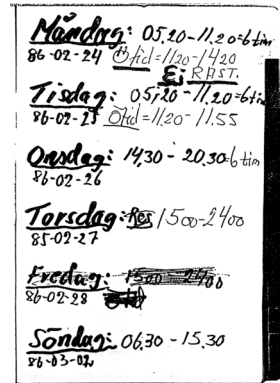 Måndag: 05,20-11.20=6 tim
86-02-24 Ötid=1120-1420
Ej RAST.
Tisdag: 05,20-11,20=6tim
86-02-25 Ötid=1120-11.55
Onsdag: 14,30 - 20,30=6tim
86-02-26
Torsdag: Res 1500-2400
85-02-27
Fredag: 1500 2400
86-02-28
Söndag: 06.30 - 15.30
86-03-02